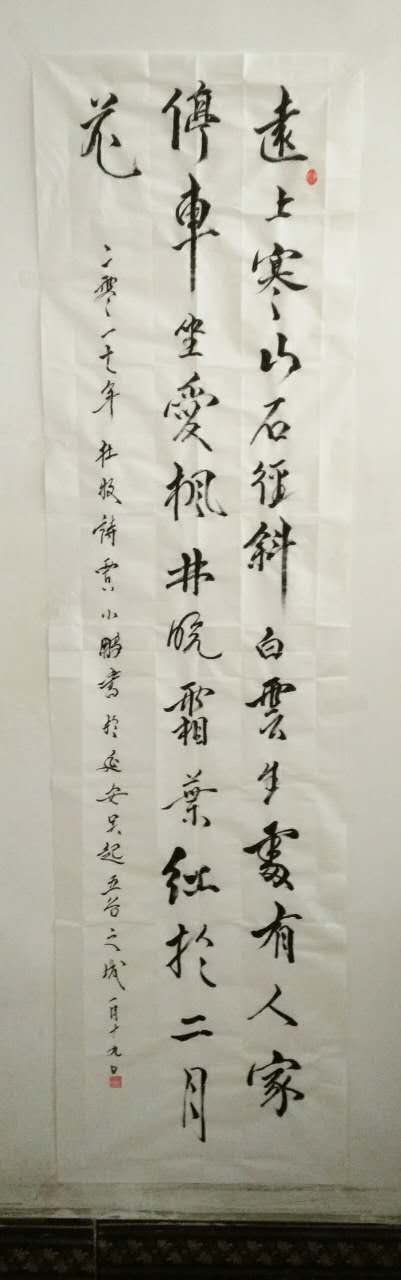 遠上寒山石徑斜白雲生處有人家
停車坐愛楓林晚霜葉紅於二月
花
二零一七年杜牧詩賈小鵬書於延安吴起五谷之城一月十九日